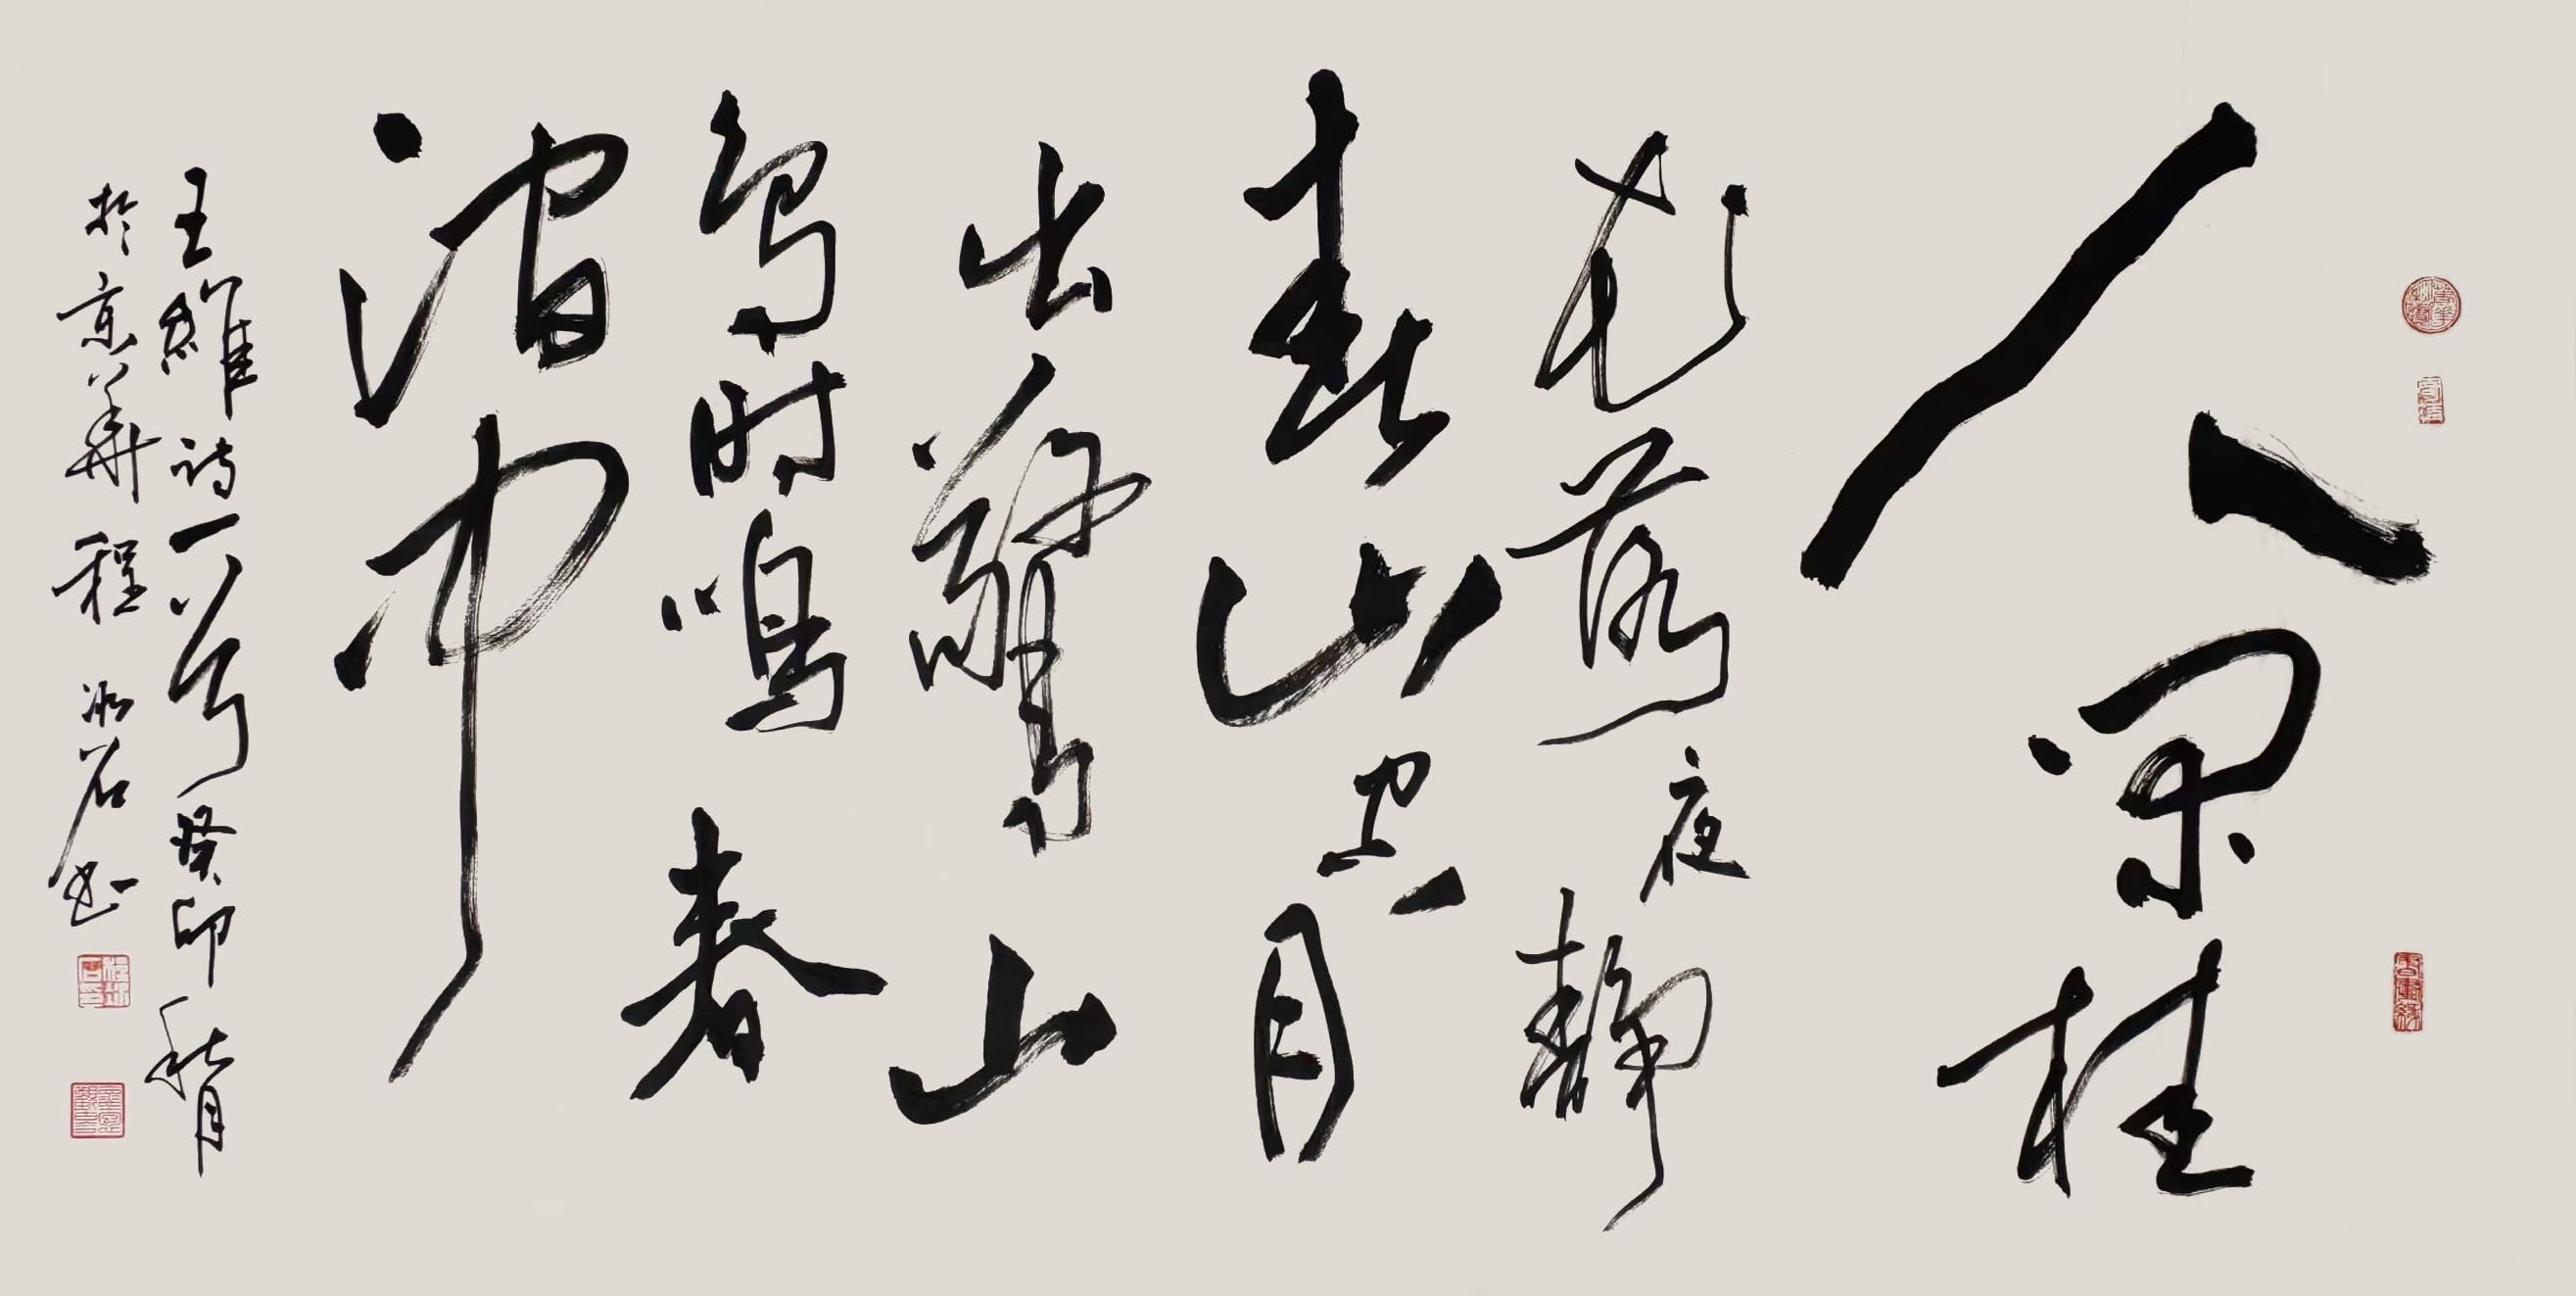 人闲桂
花落夜靜
春山空月
出驚山
鸟时鸣春
涧中
王維诗一首癸卯秋月
於京華程石书